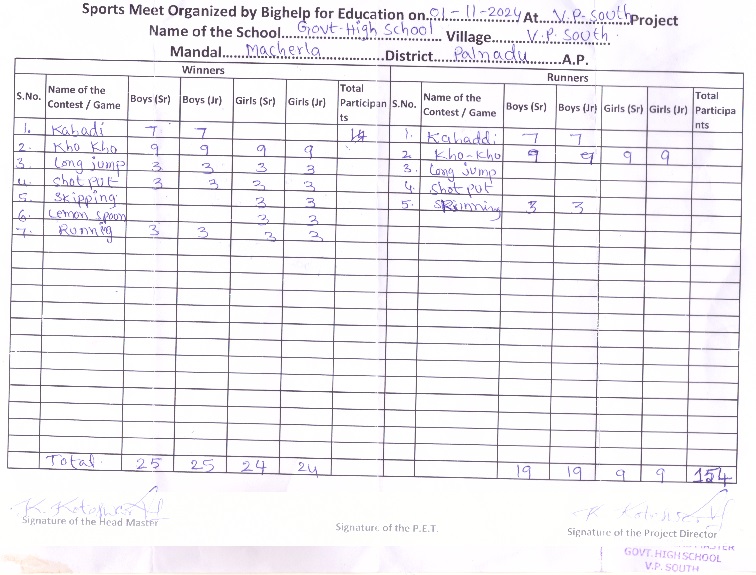 Sports Meet Organized by Bighelp for Education on 01-11-2024 At V.P. South Project
Name of the School Govt. High School Village V.P. South.
Mandal Macherla District Palnadu A.P.
Winners Runners
S.No. Name of the Contest / Game Boys (Sr) Boys (Jr) Girls (Sr) Girls (Jr) Total Participants S.No. Name of the Contest / Game Boys (Sr) Boys (Jr) Girls (Sr) Girls (Jr) Total Participants
1. Kabadi 7 7 14 1. Kabaddi 7 7
2. Kho Kho 9 9 9 9 2 Kho-Kho 9 9 9 9
3. Long jump 3 3 3 3 3. Long jump
4. Shot put 3 3 3 3 4. Shot put
5. Skipping 3 3 5. Running 3 3
6. Lemon spoon 3 3
7. Running 3 3 3 3
Total. 25 25 24 24 19 19 9 9 154
Signature of the Head Master Signature of the P.E.T. Signature of the Project Director
GOVT. HIGH SCHOOL
V.P. SOUTH